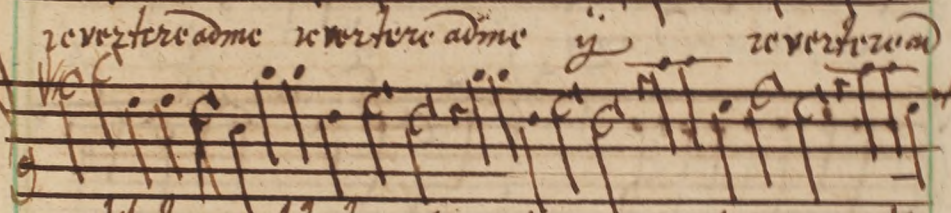 revertere ad me revertere ad me ij revertere ad